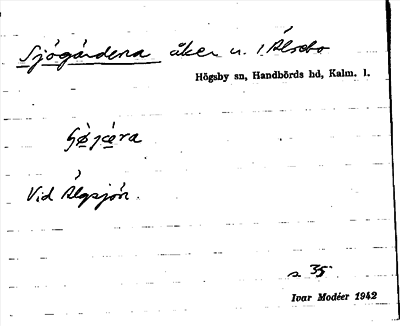 Sjögärdena åker u. 1 Älsebo
Högsby sn, Handbörds hd, Kalm. l.
Vid Älgsjön.
s 35.
Ivar Modéer 1942